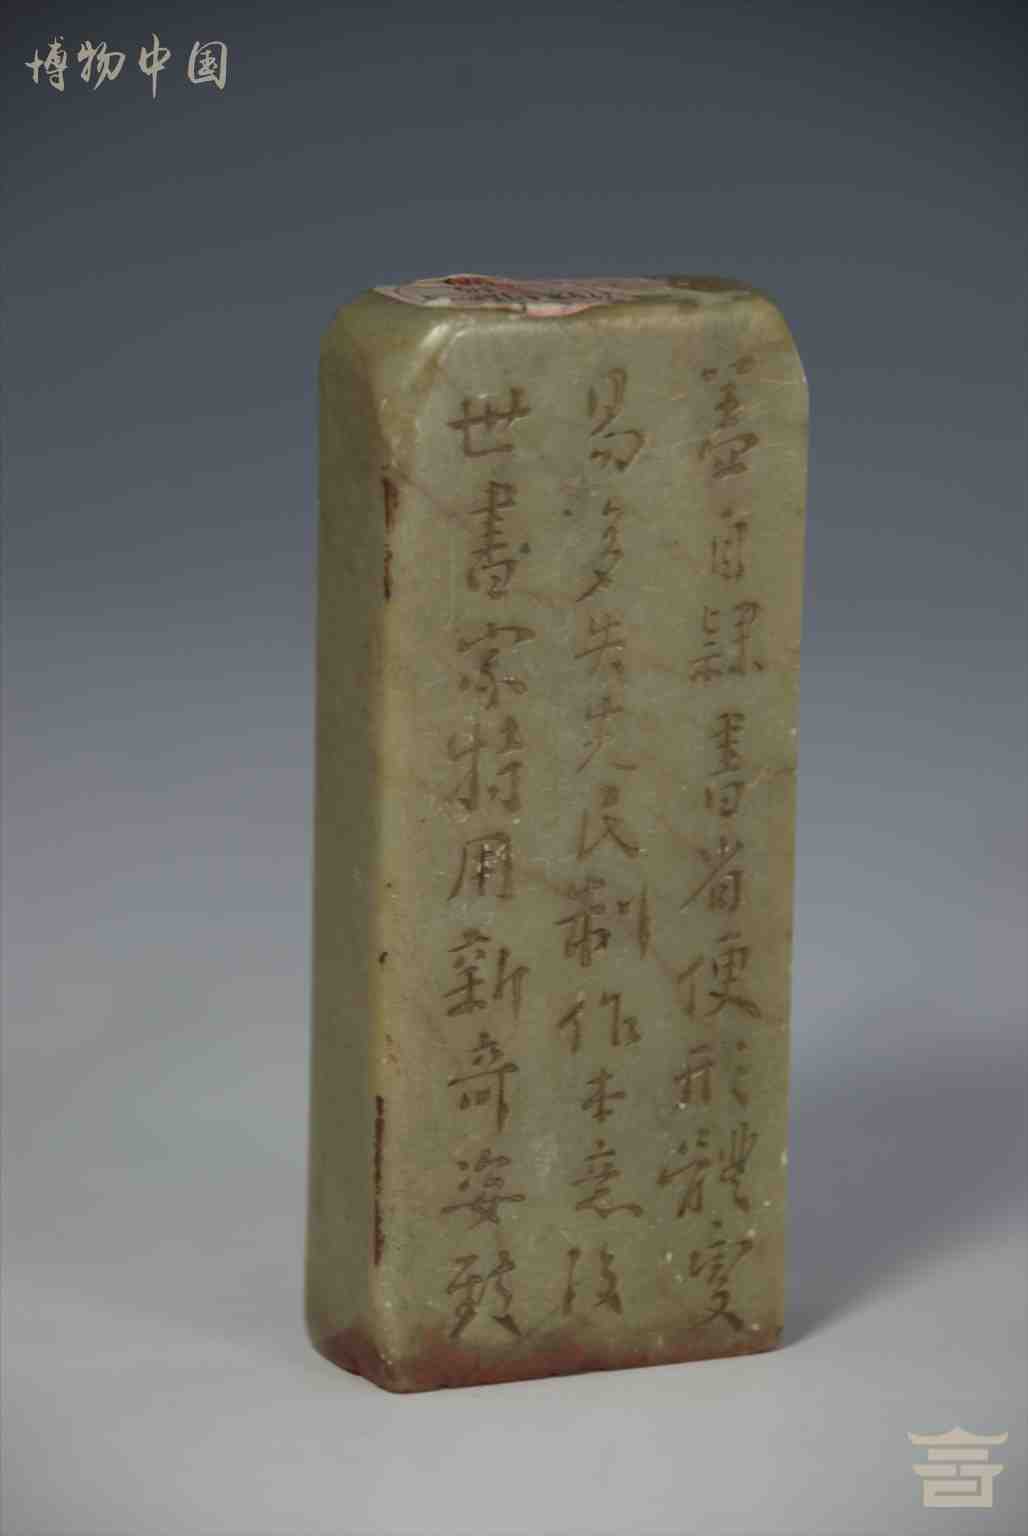 博物中国
蓋自隸書省便形體變
易多失先民制作本意後
世書家特用新奇姿致